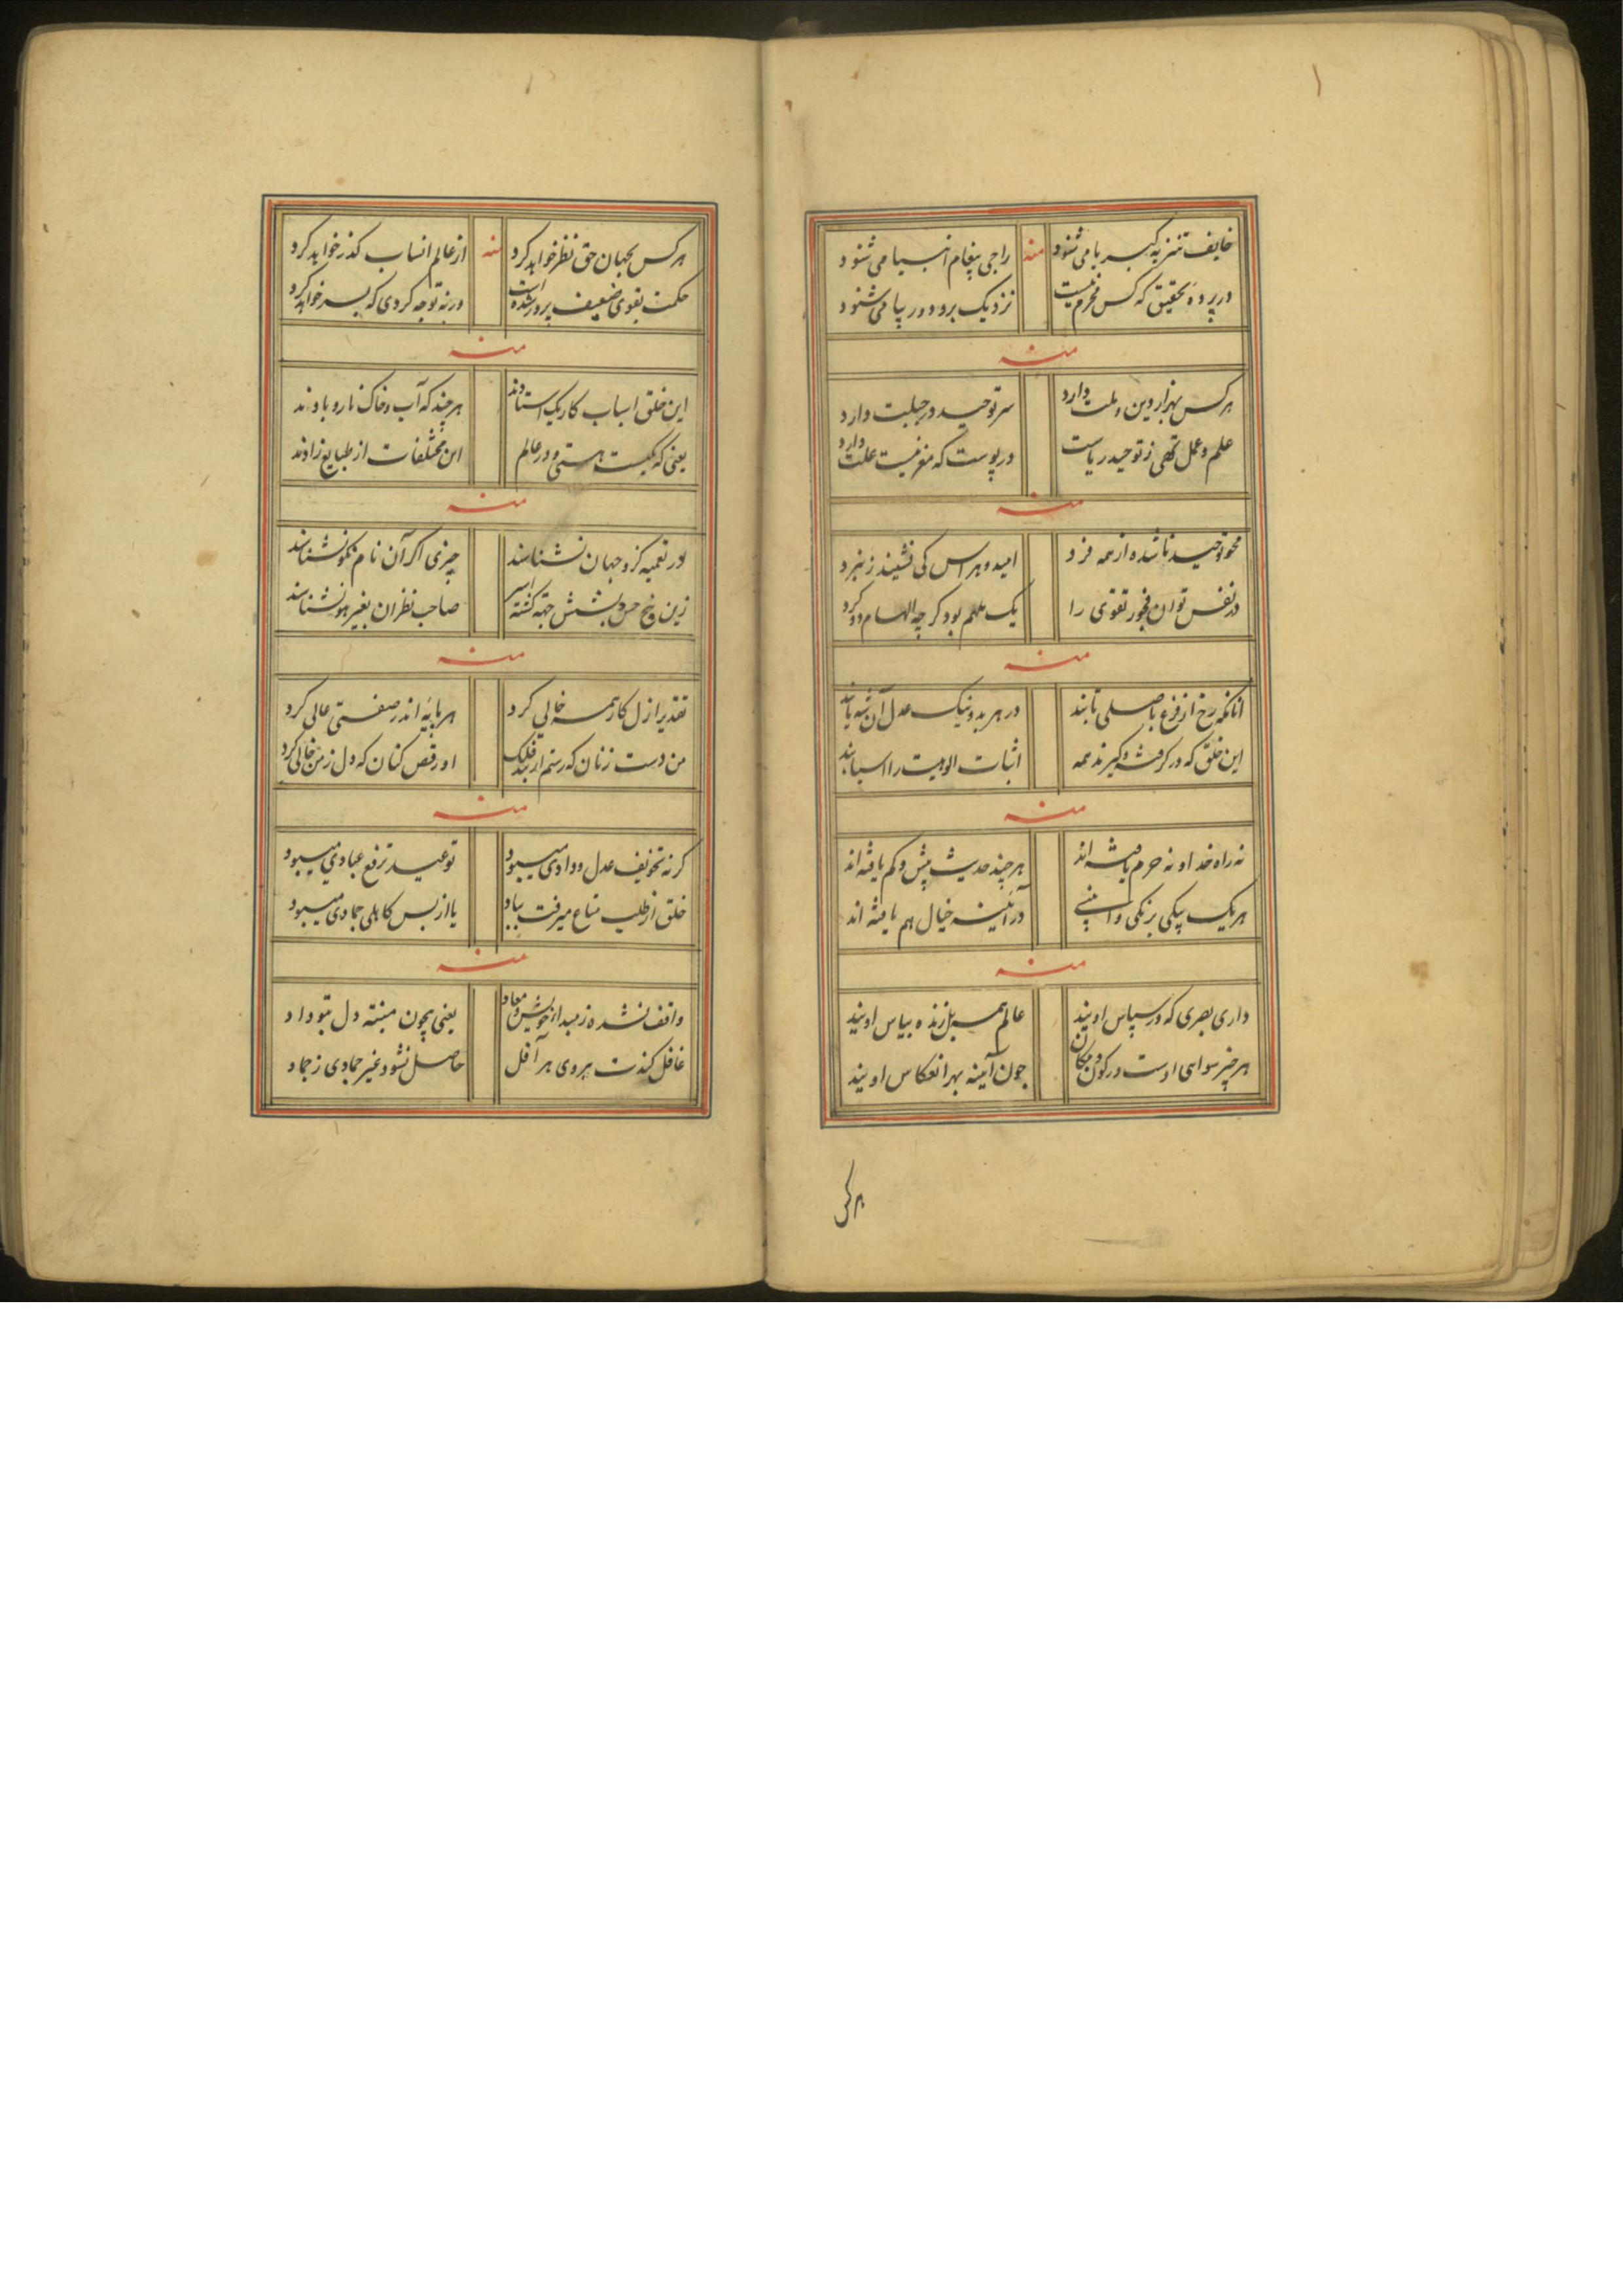 خایف تنزیه کبریا می شنود منه راجی پیغام انبیا می شنود
در پرده تحقیق که کس محرم نیست نزدیک برو دور بیا می شنود
منه
هر کس بهزار دین و ملت دارد سر توحید در جبلت دارد
علم و عمل تهی ز توحید ریاست در پوست که مغز نیست علت دارد
منه
محو توحید ناشده از همه فرد امید و هراس کی نشیند ز نبرد
در نفس توان فجور تقوی را یک ملهم بود کرچه الهام دو کرد
منه
آنانکه رخ از فرع باصلی تابند در هر بد و نیک عدل آن شه یابند
این خلق که در کرفت و کیرند همه اثبات الوهیت را اسبابند
منه
نه راه خدا و نه حرم یافته اند هر چند حدیث بیش و کم یافته اند
هر یک پیکی برنکی و در آئینه خیال هم یافته اند
منه
داری بصری که در سپاس اویند عالم همه ژنده پلاس اویند
هر چیز سوای اوست در کون و مکان چون آیینه بهر انعکاس اویند
هر کس
هر کس بجهان حق نظر خواهد کرد منه از عالم انساب کذر خواهد کرد
حکمت بقوی ضعیف پرور شده است ورنه توجه کردی که بسر خواهد کرد
منه
این خلق اسباب کار یک استادند هر چند که آب و خاک و نار و بادند
یعنی که یکیست هستی و در عالم این مختلفات از طبایع زادند
منه
در تعمیه کزو جهان نشناسند چیزی اکر آن نام نکو نشناسند
زین پنج حس و بشش جهة کشته اسیر صاحب نظران بغیر هو نشناسند
منه
تقدیر ازل کار همه خالی کرد هر پایه اندر صفتی عالی کرد
من دست زنان که رستم از بند فلک او رقص کنان که دل ز من خالی کرد
منه
کر نه تخویف عدل و دادی میبود توعید ترفع عبادی میبود
خلق از طلب متاع میرفت بباد یا از بس کاهلی جمادی میبود
منه
واقف نشده ز مبدا خویش و معاد یعنی بچون منبته دل بتو داد
غافل کندت پیروی هر آفل حاصل نشود غیر جمادی ز جماد